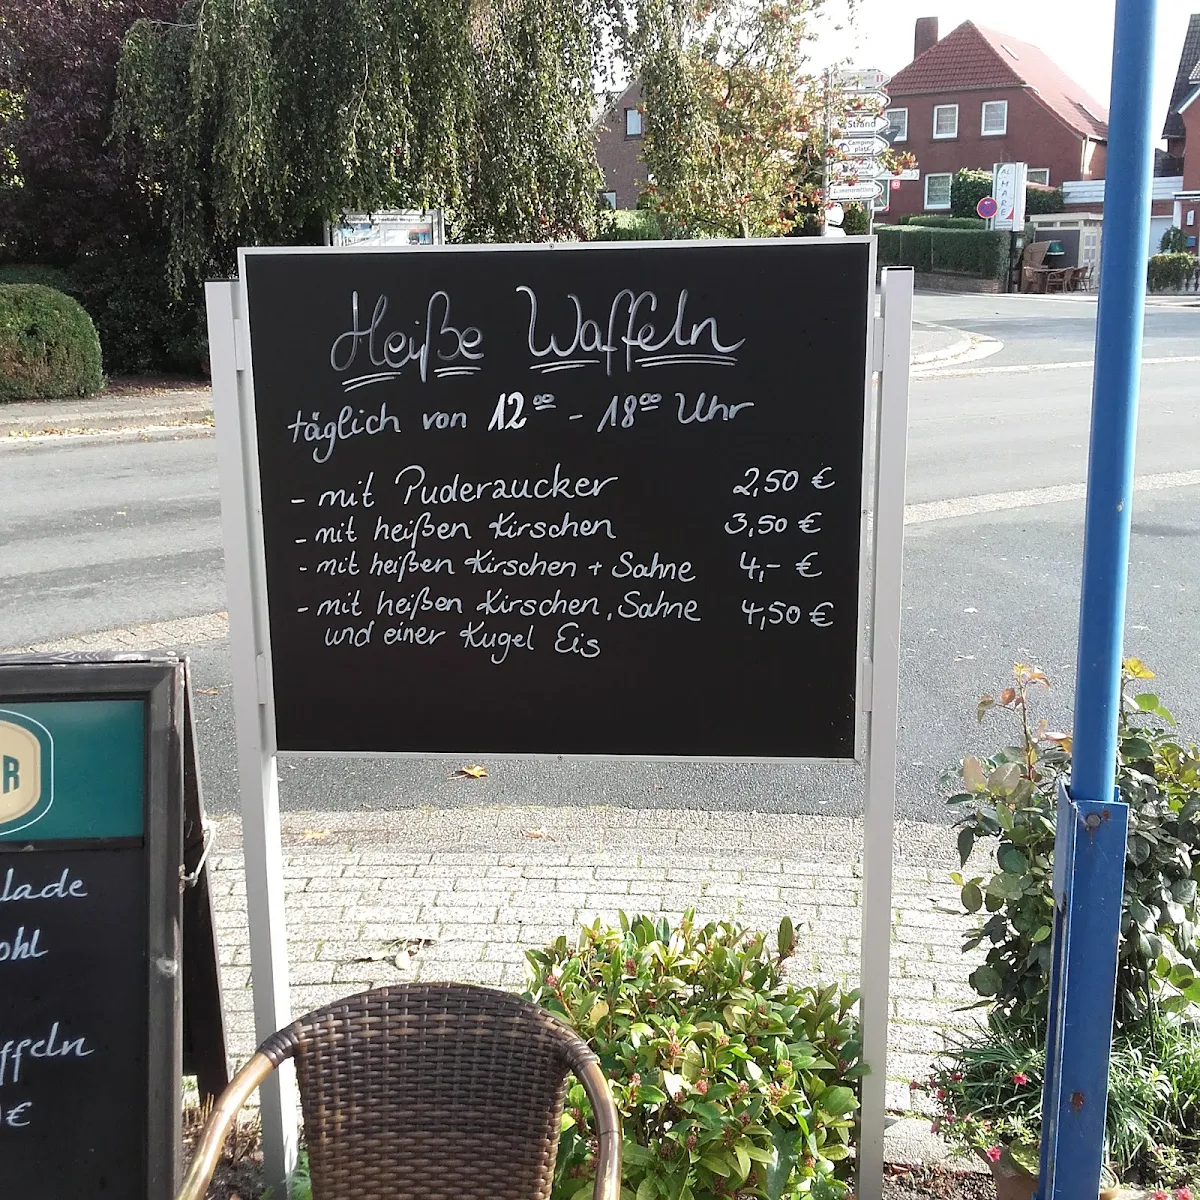 Heiße Waffeln
täglich von 12ºº - 18ºº Uhr
- mit Puderzucker 2,50 €
- mit heißen Kirschen 3,50 €
- mit heißen Kirschen + Sahne 4,- €
- mit heißen Kirschen, Sahne 4,50 €
und einer Kugel Eis
Strand
Camping
platz
AL
MARE
R
lade
ohl
ffeln
€